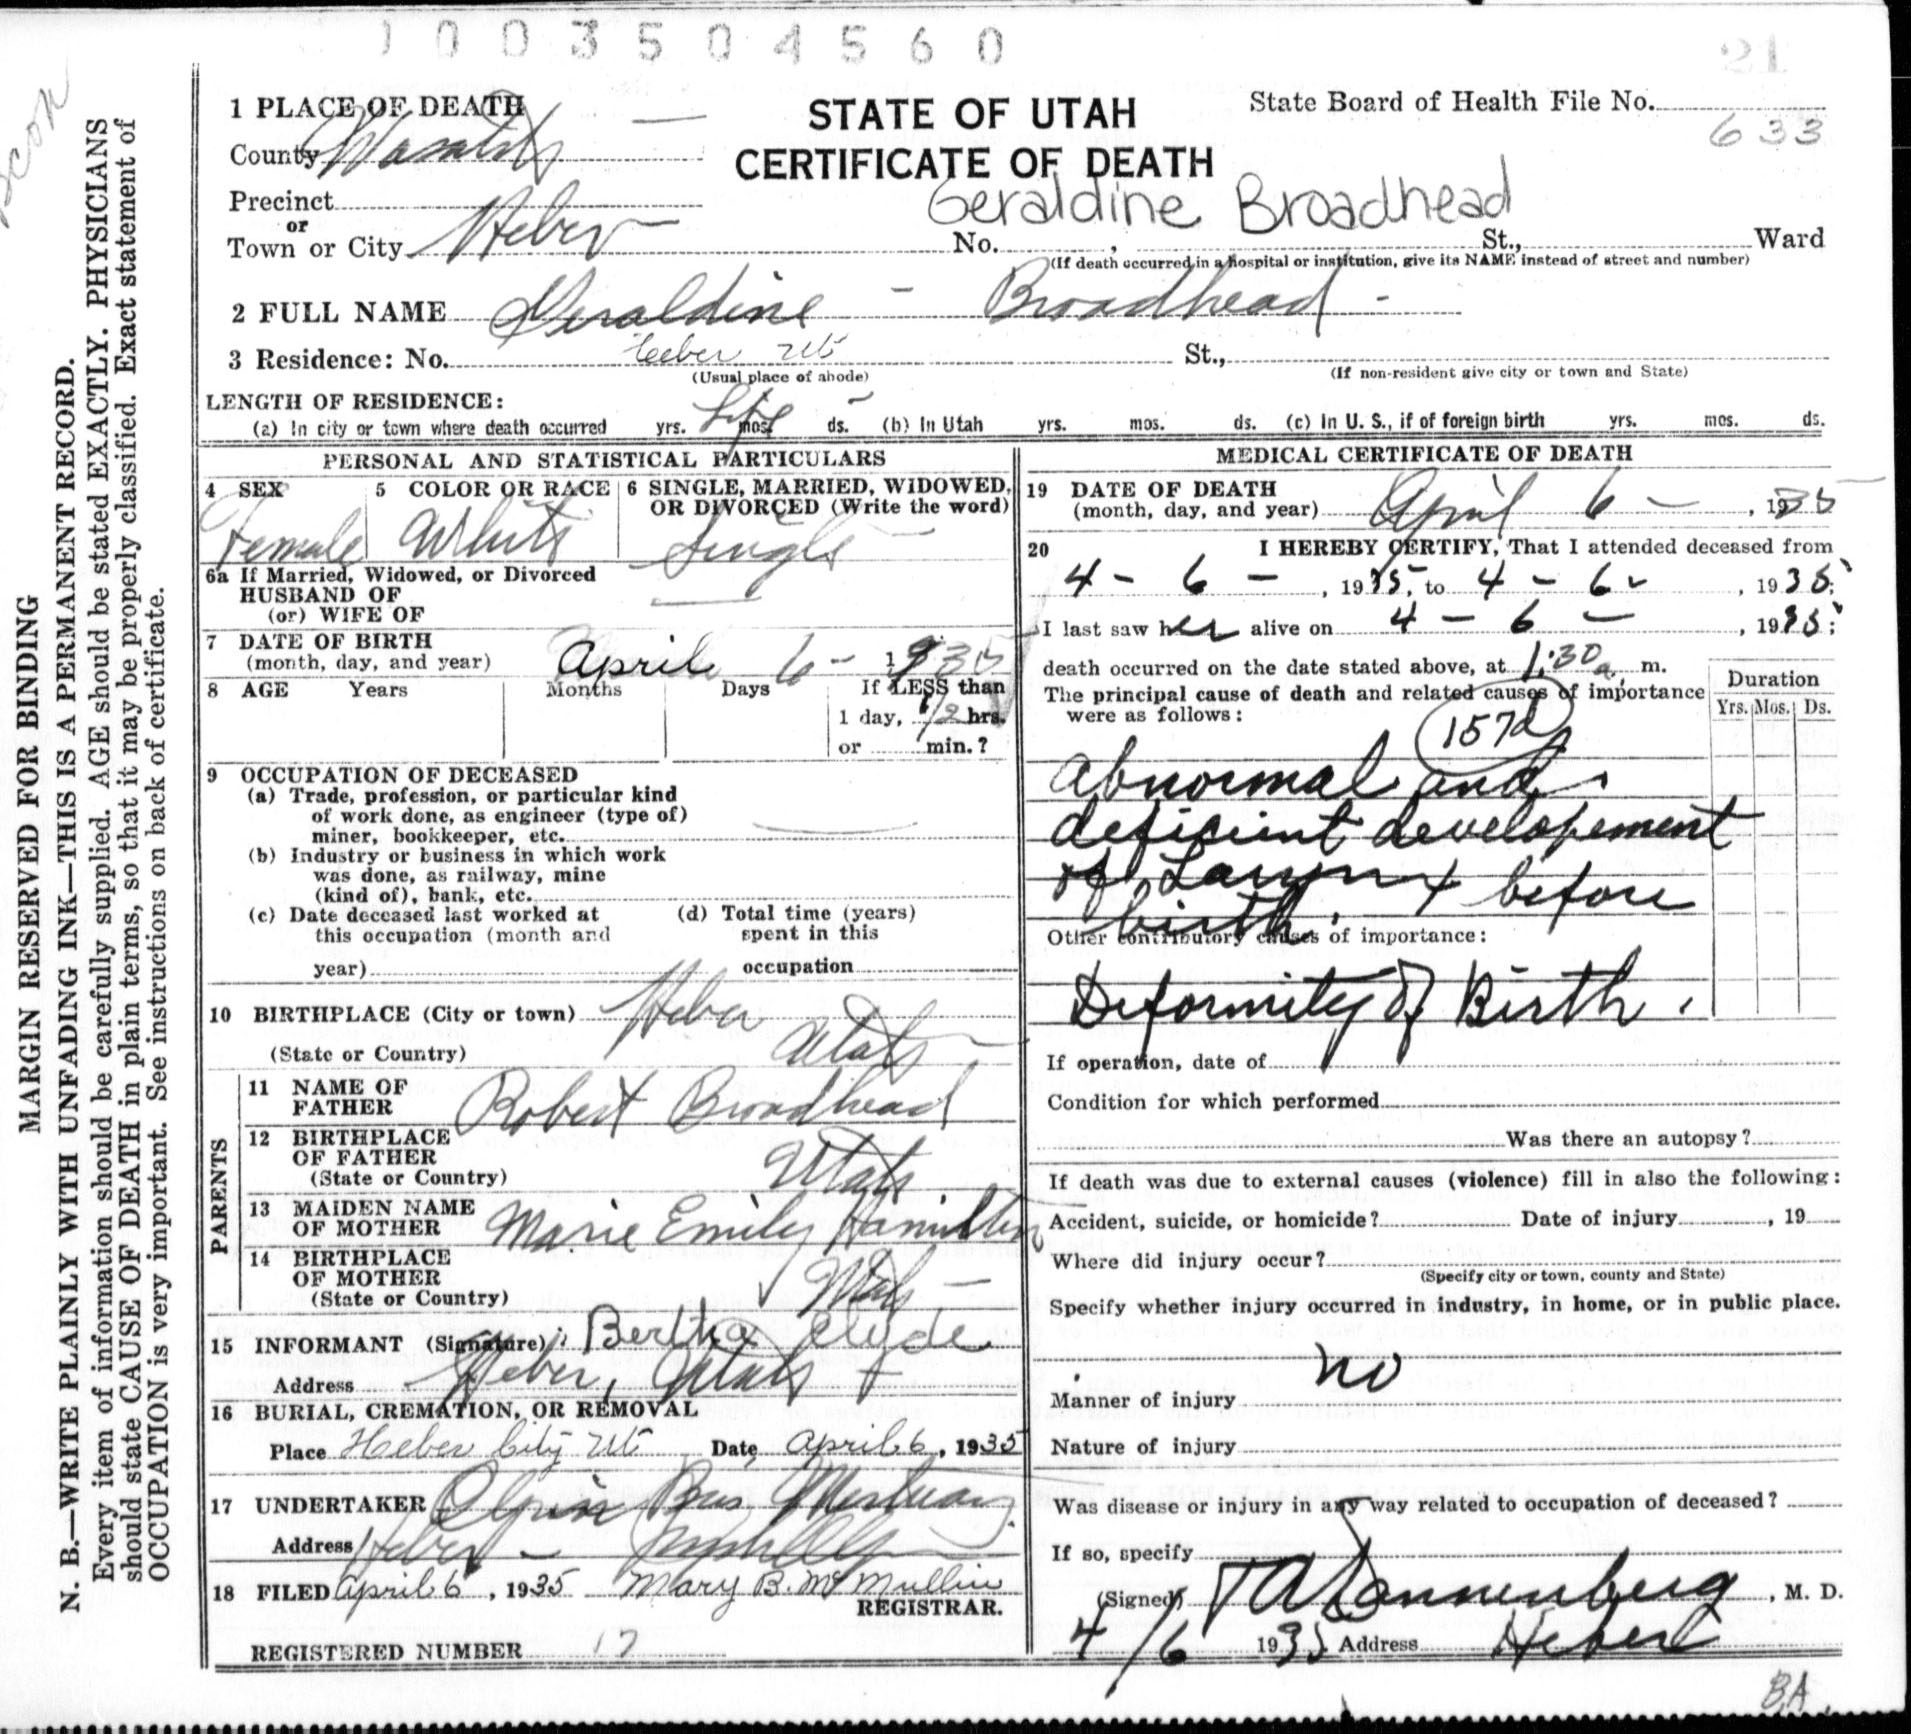 1003504560
21
MARGIN RESERVED FOR BINDING
N. B.—WRITE PLAINLY WITH UNFADING INK—THIS IS A PERMANENT RECORD.
Every item of information should be carefully supplied. AGE should be stated EXACTLY. PHYSICIANS
should state CAUSE OF DEATH in plain terms, so that it may be properly classified. Exact statement of
OCCUPATION is very important. See instructions on back of certificate.
STATE OF UTAH
CERTIFICATE OF DEATH
State Board of Health File No.
633
1 PLACE OF DEATH
County Wasatch
Precinct
or
Town or City Heber
Geraldine Broadhead
No. , St., Ward
(If death occurred in a hospital or institution, give its NAME instead of street and number)
2 FULL NAME Geraldine - Broadhead -
3 Residence: No. Heber Ut St.,
(Usual place of abode) (If non-resident give city or town and State)
LENGTH OF RESIDENCE: Life
(a) In city or town where death occurred yrs. mos. ds. (b) In Utah yrs. mos. ds. (c) In U. S., if of foreign birth yrs. mos. ds.
PERSONAL AND STATISTICAL PARTICULARS
4 SEX Female
5 COLOR OR RACE White
6 SINGLE, MARRIED, WIDOWED, OR DIVORCED (Write the word) Single
6a If Married, Widowed, or Divorced
HUSBAND OF
(or) WIFE OF
7 DATE OF BIRTH
(month, day, and year) April 6 - 1935
8 AGE Years Months Days If LESS than
1 day, 1/2 hrs.
or min.?
9 OCCUPATION OF DECEASED
(a) Trade, profession, or particular kind
of work done, as engineer (type of)
miner, bookkeeper, etc.
(b) Industry or business in which work
was done, as railway, mine
(kind of), bank, etc.
(c) Date deceased last worked at (d) Total time (years)
this occupation (month and spent in this
year) occupation
10 BIRTHPLACE (City or town) Heber
(State or Country) Utah
PARENTS
11 NAME OF
FATHER Robert Broadhead
12 BIRTHPLACE
OF FATHER
(State or Country) Utah
13 MAIDEN NAME
OF MOTHER Marie Emily Hamilton
14 BIRTHPLACE
OF MOTHER
(State or Country) Utah
15 INFORMANT (Signature) Bertha Clyde
Address Heber, Utah
16 BURIAL, CREMATION, OR REMOVAL
Place Heber City Ut Date April 6, 1935
17 UNDERTAKER Olpin Bros Mortuary
Address Heber -
18 FILED April 6, 1935 Mary B. McMullin
REGISTRAR.
REGISTERED NUMBER 17
MEDICAL CERTIFICATE OF DEATH
19 DATE OF DEATH
(month, day, and year) April 6 - , 1935
20 I HEREBY CERTIFY, That I attended deceased from
4 - 6 - , 1935, to 4 - 6 - , 1935;
I last saw her alive on 4 - 6 - , 1935;
death occurred on the date stated above, at 1:30 a. m.
The principal cause of death and related causes of importance
were as follows:
Duration
Yrs. Mos. Ds.
157d
Abnormal and
deficient developement
of Larynx before
birth.
Other contributory causes of importance:
Deformity of Birth.
If operation, date of
Condition for which performed
Was there an autopsy?
If death was due to external causes (violence) fill in also the following:
Accident, suicide, or homicide? Date of injury , 19
Where did injury occur?
(Specify city or town, county and State)
Specify whether injury occurred in industry, in home, or in public place.
no
Manner of injury
Nature of injury
Was disease or injury in any way related to occupation of deceased?
If so, specify
(Signed) T A Dannenberg, M. D.
4/6 1935 Address Heber
B.A.